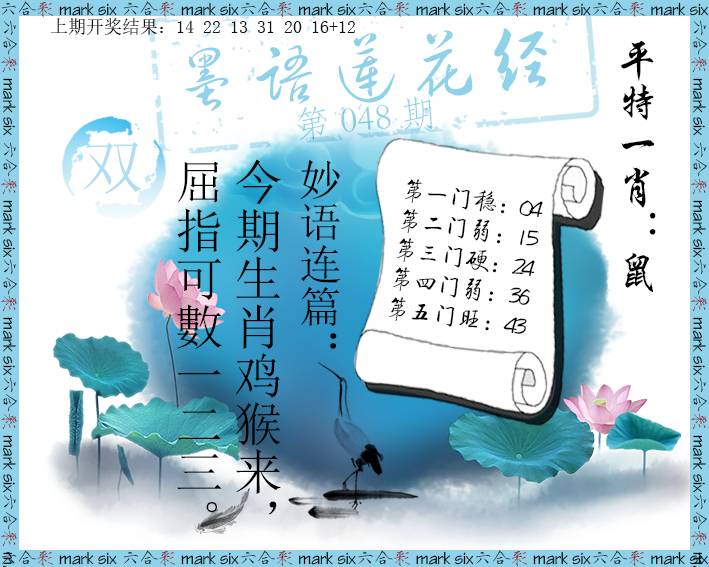 上期开奖结果: 14 22 13 31 20 16+12
墨语莲花经
第 048 期
双
平特一肖：鼠
妙语连篇：
今期生肖鸡猴来，
屈指可數一二三。
第一门稳：04
第二门弱：15
第三门硬：24
第四门弱：36
第五门旺：43
mark six 六合彩 mark six 六合彩 mark six 六合彩 mark six 六合彩 mark six 六合彩